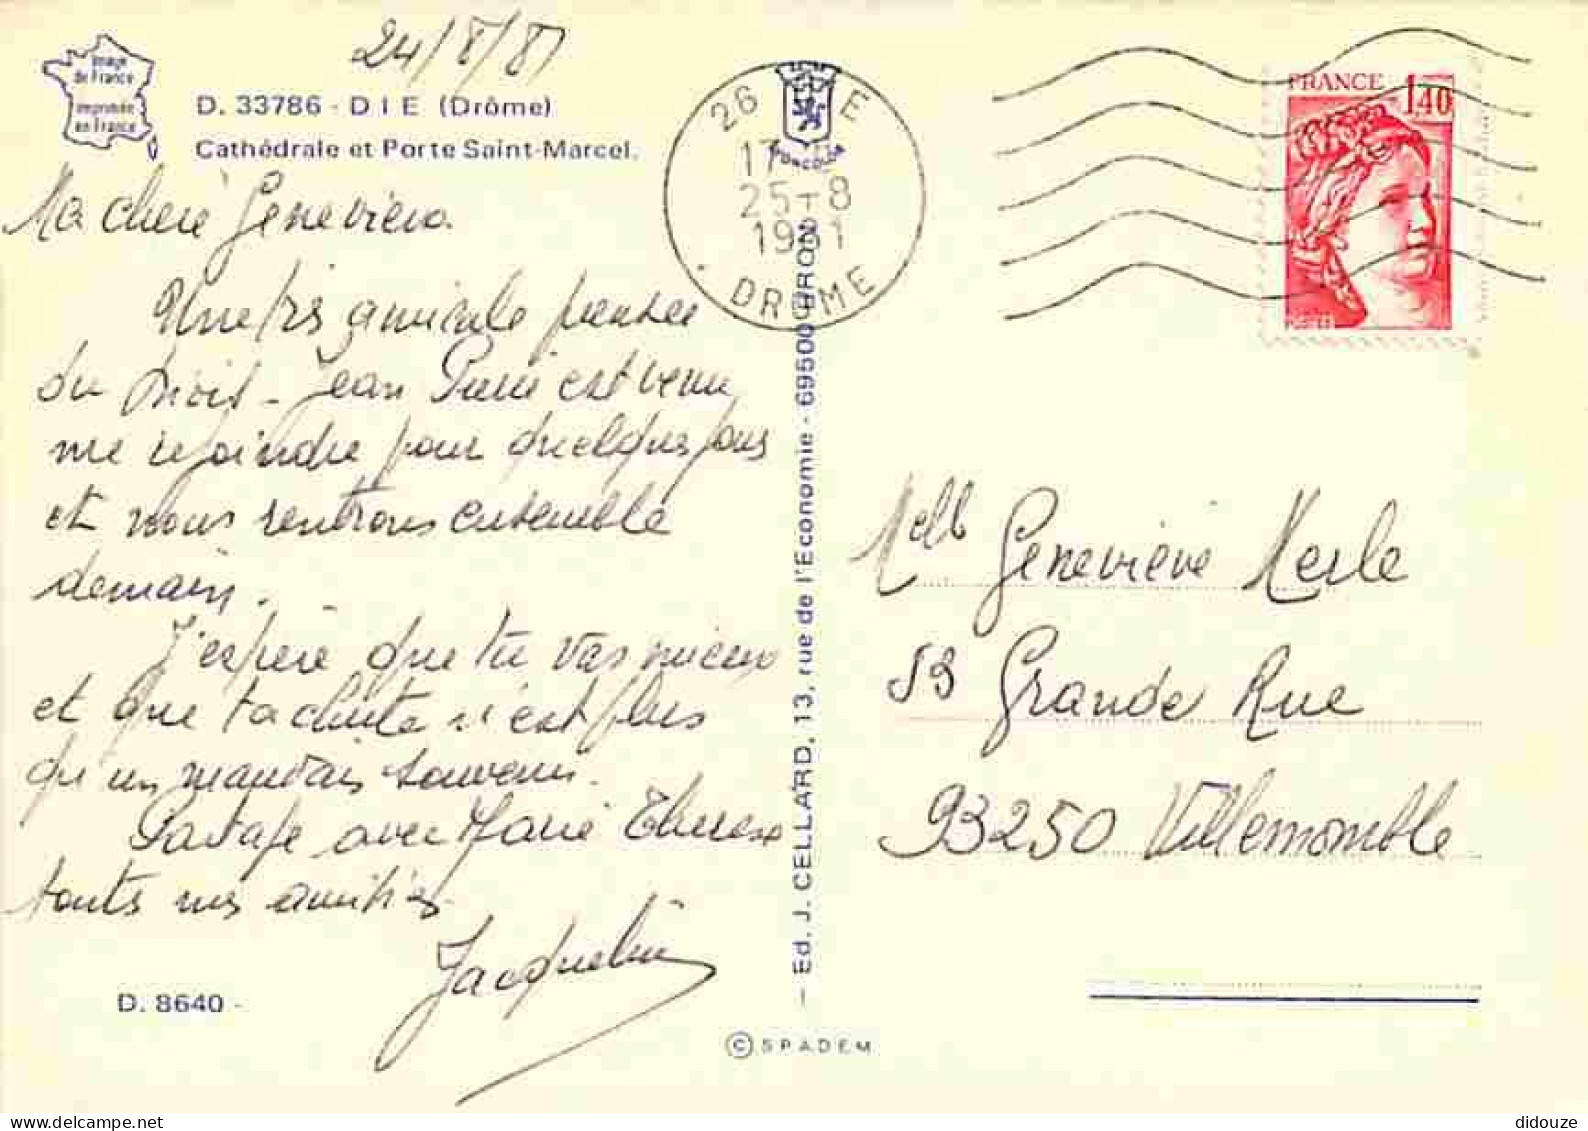 24/8/81
Image
de France
imprimée
en France
D. 33786 - DIE (Drôme)
Cathédrale et Porte Saint-Marcel.
26 DIE
17
25-8
1981
DROME
FRANCE
1,40
Ma chère Geneviève.
Une très amicale pensée
du Diois - Jean Pierre est venu
me rejoindre pour quelques jours
et nous rentrons ensemble
demain.
J'espère que tu vas mieux
et que ta chute n'est plus
qu'un mauvais souvenir.
Partage avec Marie Thérèse
toutes nos amitiés.
Jacqueline
D. 8640 -
— Ed. J. CELLARD, 13, rue de l'Economie - 69500 BRON
© SPADEM
Melle Geneviève Merle
53 Grande Rue
93250 Villemomble
didouze